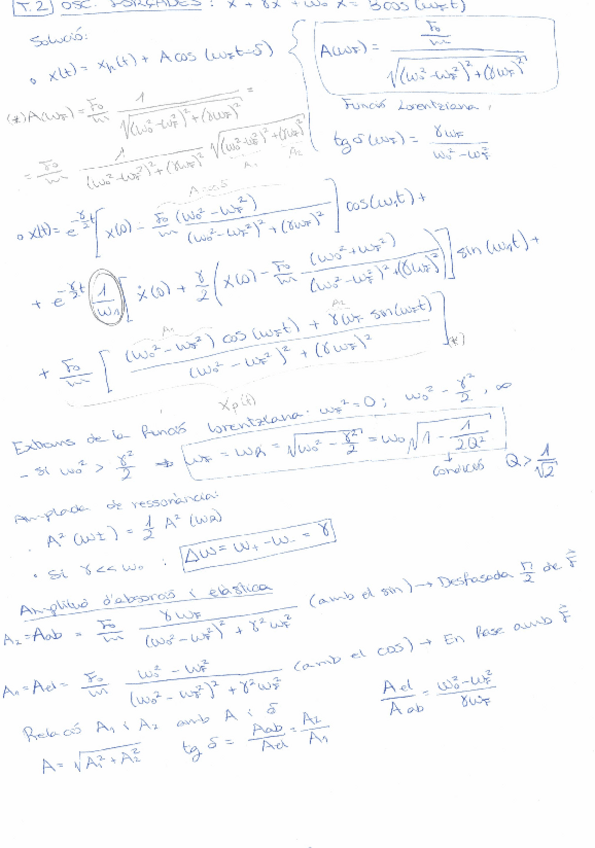 T.2 OSC. FORÇADES: ẍ + γẋ + ω₀² x = B cos(ω_F t)
Solució:
o x(t) = x_h(t) + A cos(ω_F t - δ)
A(ω_F) = (F₀/m) / √((ω₀² - ω_F²)² + (γω_F)²)
Funció Lorentziana,
tg δ(ω_F) = γω_F / (ω₀² - ω_F²)
(*) A(ω_F) = F₀/m · 1 / √((ω₀² - ω_F²)² + (γω_F)²) =
= F₀/m · 1 / ((ω₀² - ω_F²)² + (γω_F)²) · √((ω₀² - ω_F²)² + (γω_F)²)
A₁ A₂
A cos δ
o x(t) = e^(-γ/2 t) [ x(0) - F₀/m (ω₀² - ω_F²) / ((ω₀² - ω_F²)² + (γω_F)²) ] cos(ω₁t) +
+ e^(-γ/2 t) 1/ω₁ [ ẋ(0) + γ/2 ( x(0) - F₀/m (ω₀² + ω_F²) / ((ω₀² - ω_F²)² + (γω_F)²) ) ] sin(ω₁t) +
A₁ A₂
+ F₀/m [ ((ω₀² - ω_F²) cos(ω_F t) + γω_F sin(ω_F t)) / ((ω₀² - ω_F²)² + (γω_F)²) ] (*)
x_p(t)
Extrems de la funció Lorentziana: ω_F² = 0; ω₀² - γ²/2, ∞
- Si ω₀² > γ²/2 → ω_F = ω_R = √(ω₀² - γ²/2) = ω₀ √(1 - 1/2Q²)
Condició Q > 1/√2
Amplada de ressonància:
A²(ω±) = 1/2 A²(ω_R)
• Si γ << ω₀ : Δω = ω₊ - ω₋ = γ
Amplitud d'absorció i elàstica
A₂ = Aab = F₀/m γω_F / ((ω₀² - ω_F²)² + γ²ω_F²) (amb el sin) → Desfasada π/2 de F⃗
A₁ = Ael = F₀/m (ω₀² - ω_F²) / ((ω₀² - ω_F²)² + γ²ω_F²) (amb el cos) → En fase amb F⃗
Relació A₁ i A₂ amb A i δ
Ael/Aab = (ω₀² - ω_F²) / γω_F
A = √(A₁² + A₂²) tg δ = Aab/Ael = A₂/A₁